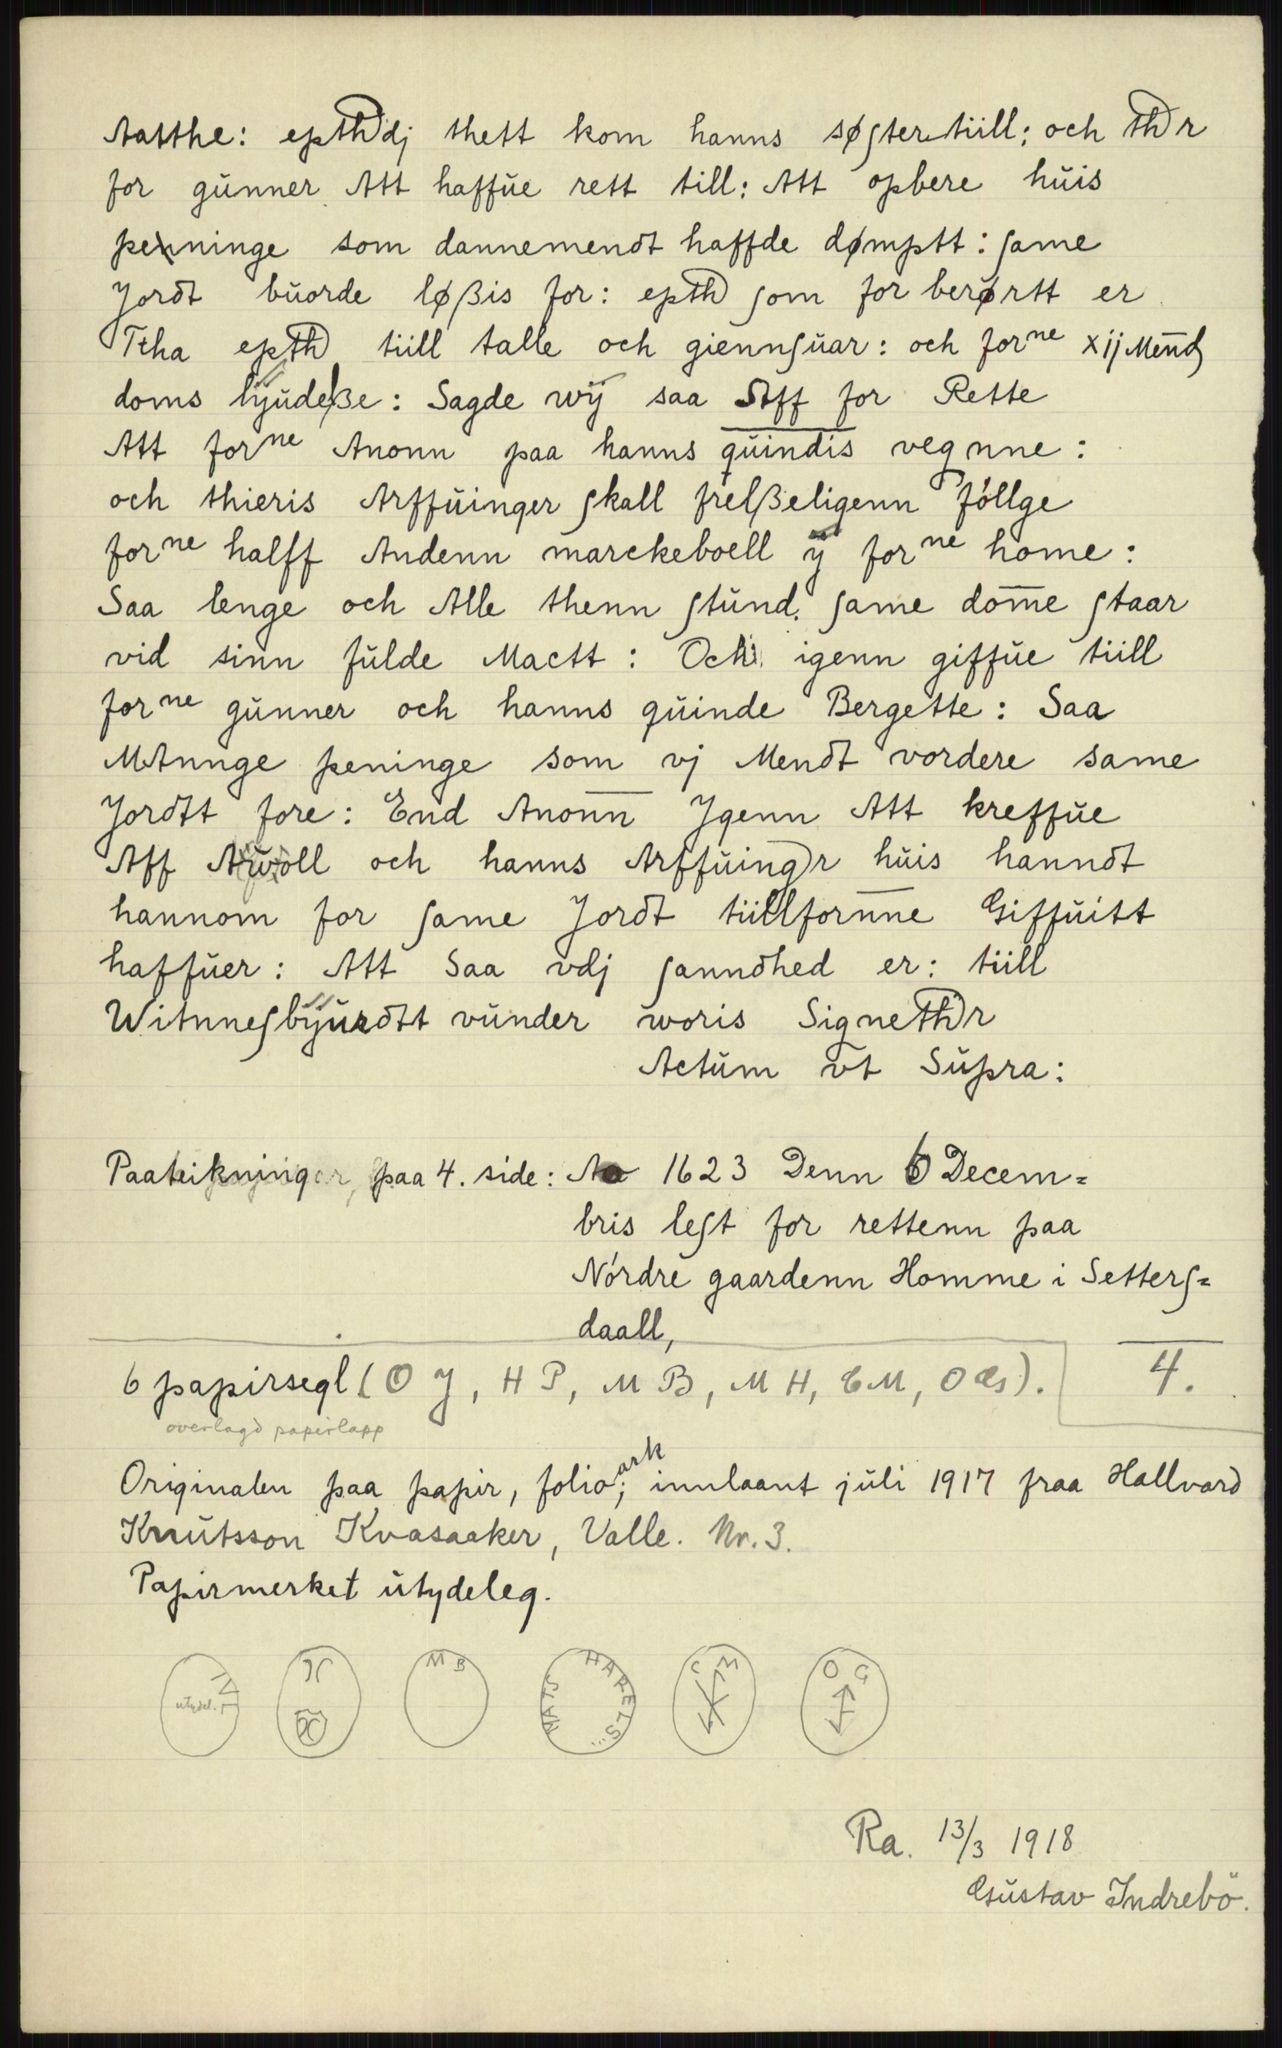 Aatthe: epthdj thett kom hanns søster tiill: och thr
for gunner Att haffue rett till: Att opbere huis
penninge som dannemendt haffde dømptt: same
Jordt buorde løßis for: epth som for berørtt er
Ttha epth tiill talle och giennsuar: och forne xij Mend
doms lÿudelße: Sagde wÿ saa Aff for Rette
Att forne Anonn paa hanns quindis vegnne:
och thieris Arffuinger skall frelßeligenn föllge
forne halff Andenn marckeboell ÿ forne home:
Saa lenge och Alle thenn stund same dom̅e staar
vid sinn fulde Mactt: Och igenn giffue tiill
forne gunner och hanns quinde Bergette: Saa
MAnnge peninge som vj Mendt vordere same
Jordtt fore: End Anonn Jgenn Att kreffue
Aff Awoll och hanns Arffuingr huis hanndt
hannom for same Jordt tiillfornne Giffuitt
haffuer: Att Saa vdj sanndhed er: tiill
Witnnesbÿurdtt vunder woris Signethr
Actum vt Supra:
Paateikningar, paa 4. side: Ao 1623 Denn 6 Decem=
bris lest for rettenn paa
Nórdre gaardenn Homme i Setters=
daall,
6 papirsegl (O J, H P, M B, M H, C M, O G). 4.
overlagd papirlapp
Originalen paa papir, folioark; innlaant juli 1917 fraa Hallvard
Knutsson Kvasaaker, Valle. Nr. 3.
Papirmerket utydeleg.
utydel. M B MATS HARELS... C M O G
Ra. 13/3 1918
Gustav Indrebö.